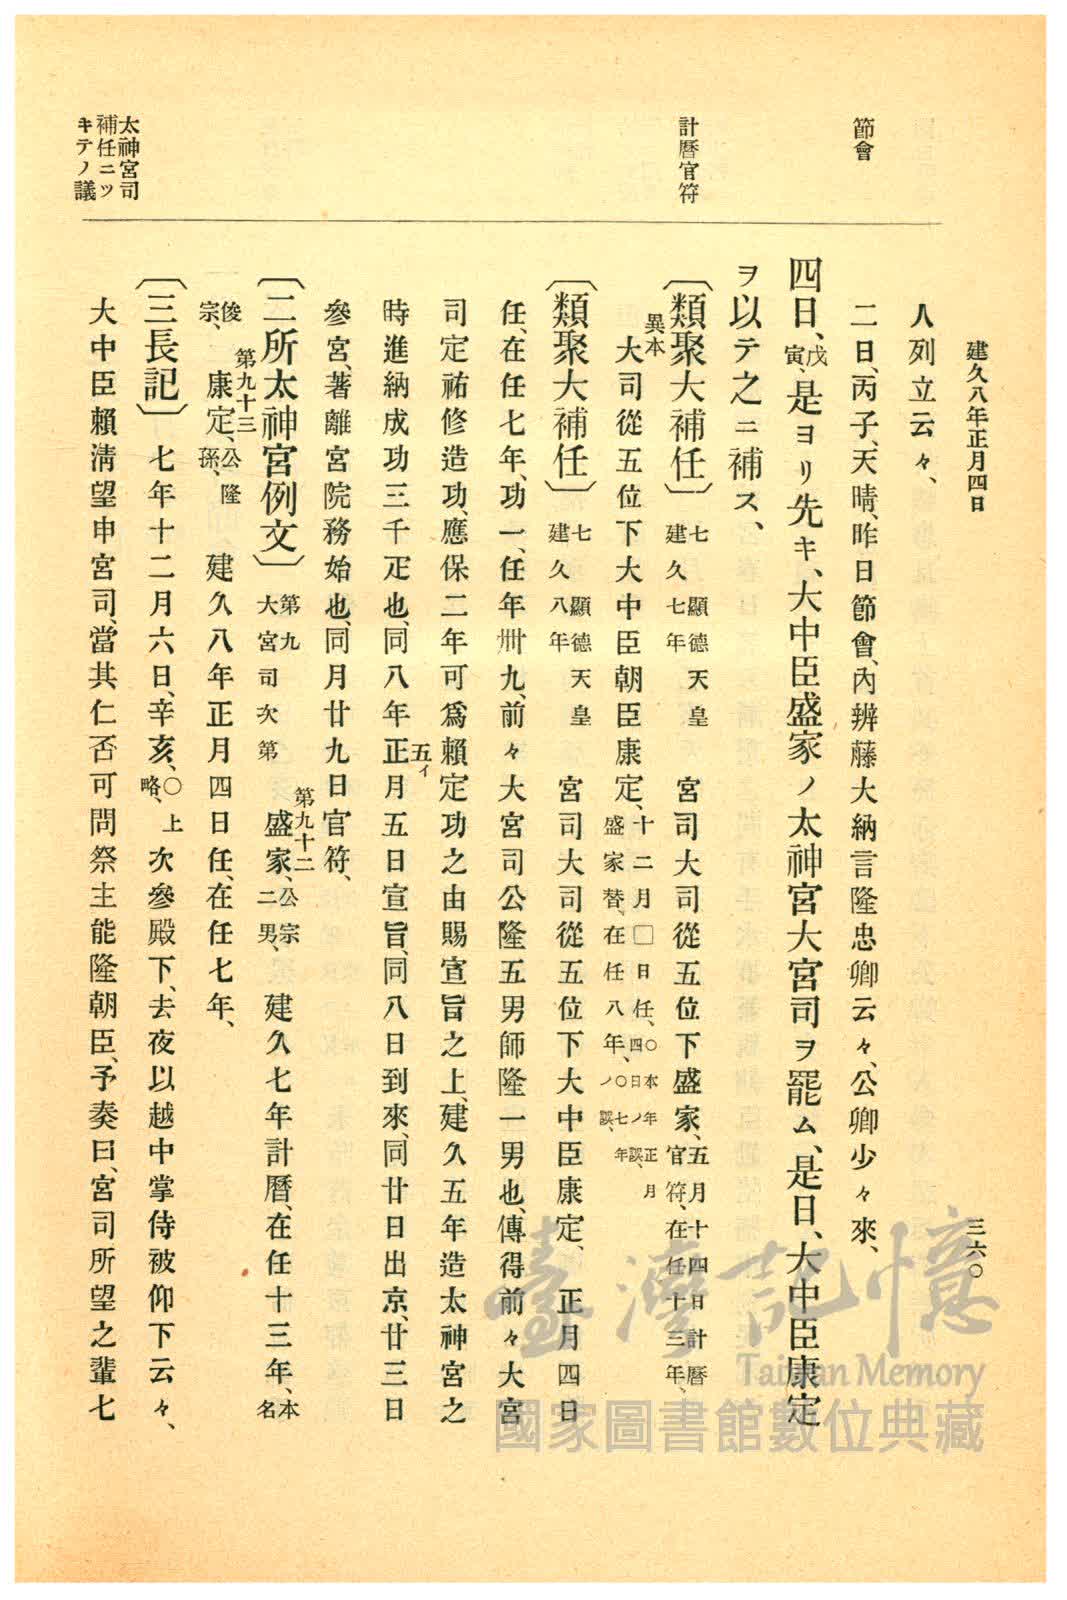 建久八年正月四日
三六〇
節會
計曆官符
太神宮司
補任ニツ
キテノ議
人列立云々、
二日、丙子、天晴、昨日節會、內辨藤大納言隆忠卿云々、公卿少々來、
四日、戊寅、是ヨリ先キ、大中臣盛家ノ太神宮大宮司ヲ罷ム、是日、大中臣康定
ヲ以テ之ニ補ス、
〔類聚大補任〕七顯德天皇建久七年 宮司大司從五位下盛家、五月十四日計曆官符、在任十三年、
異本
大司從五位下大中臣朝臣康定、十二月□日任、〇本年正月四日ノ誤、盛家替、在任八年、〇七年ノ誤、
〔類聚大補任〕七顯德天皇建久八年 宮司大司從五位下大中臣康定、正月四日
任、在任七年、功一、任年卅九、前々大宮司公隆五男師隆一男也、傳得前々大宮
司定祐修造功、應保二年可爲賴定功之由賜宣旨之上、建久五年造太神宮之
時進納成功三千疋也、同八年正五イ月五日宣旨、同八日到來、同廿日出京、廿三日
參宮、著離宮院務始也、同月廿九日官符、
〔二所太神宮例文〕第九大宮司次第 第九十二 盛家、公宗二男、建久七年計曆、在任十三年、本名
俊宗、第九十三 康定、公隆孫、建久八年正月四日任、在任七年、
〔三長記〕七年十二月六日、辛亥、〇上略、次參殿下、去夜以越中掌侍被仰下云々、
大中臣賴淸望申宮司、當其仁否可問祭主能隆朝臣、予奏曰、宮司所望之輩七
臺灣記憶
Taiwan Memory
國家圖書館數位典藏